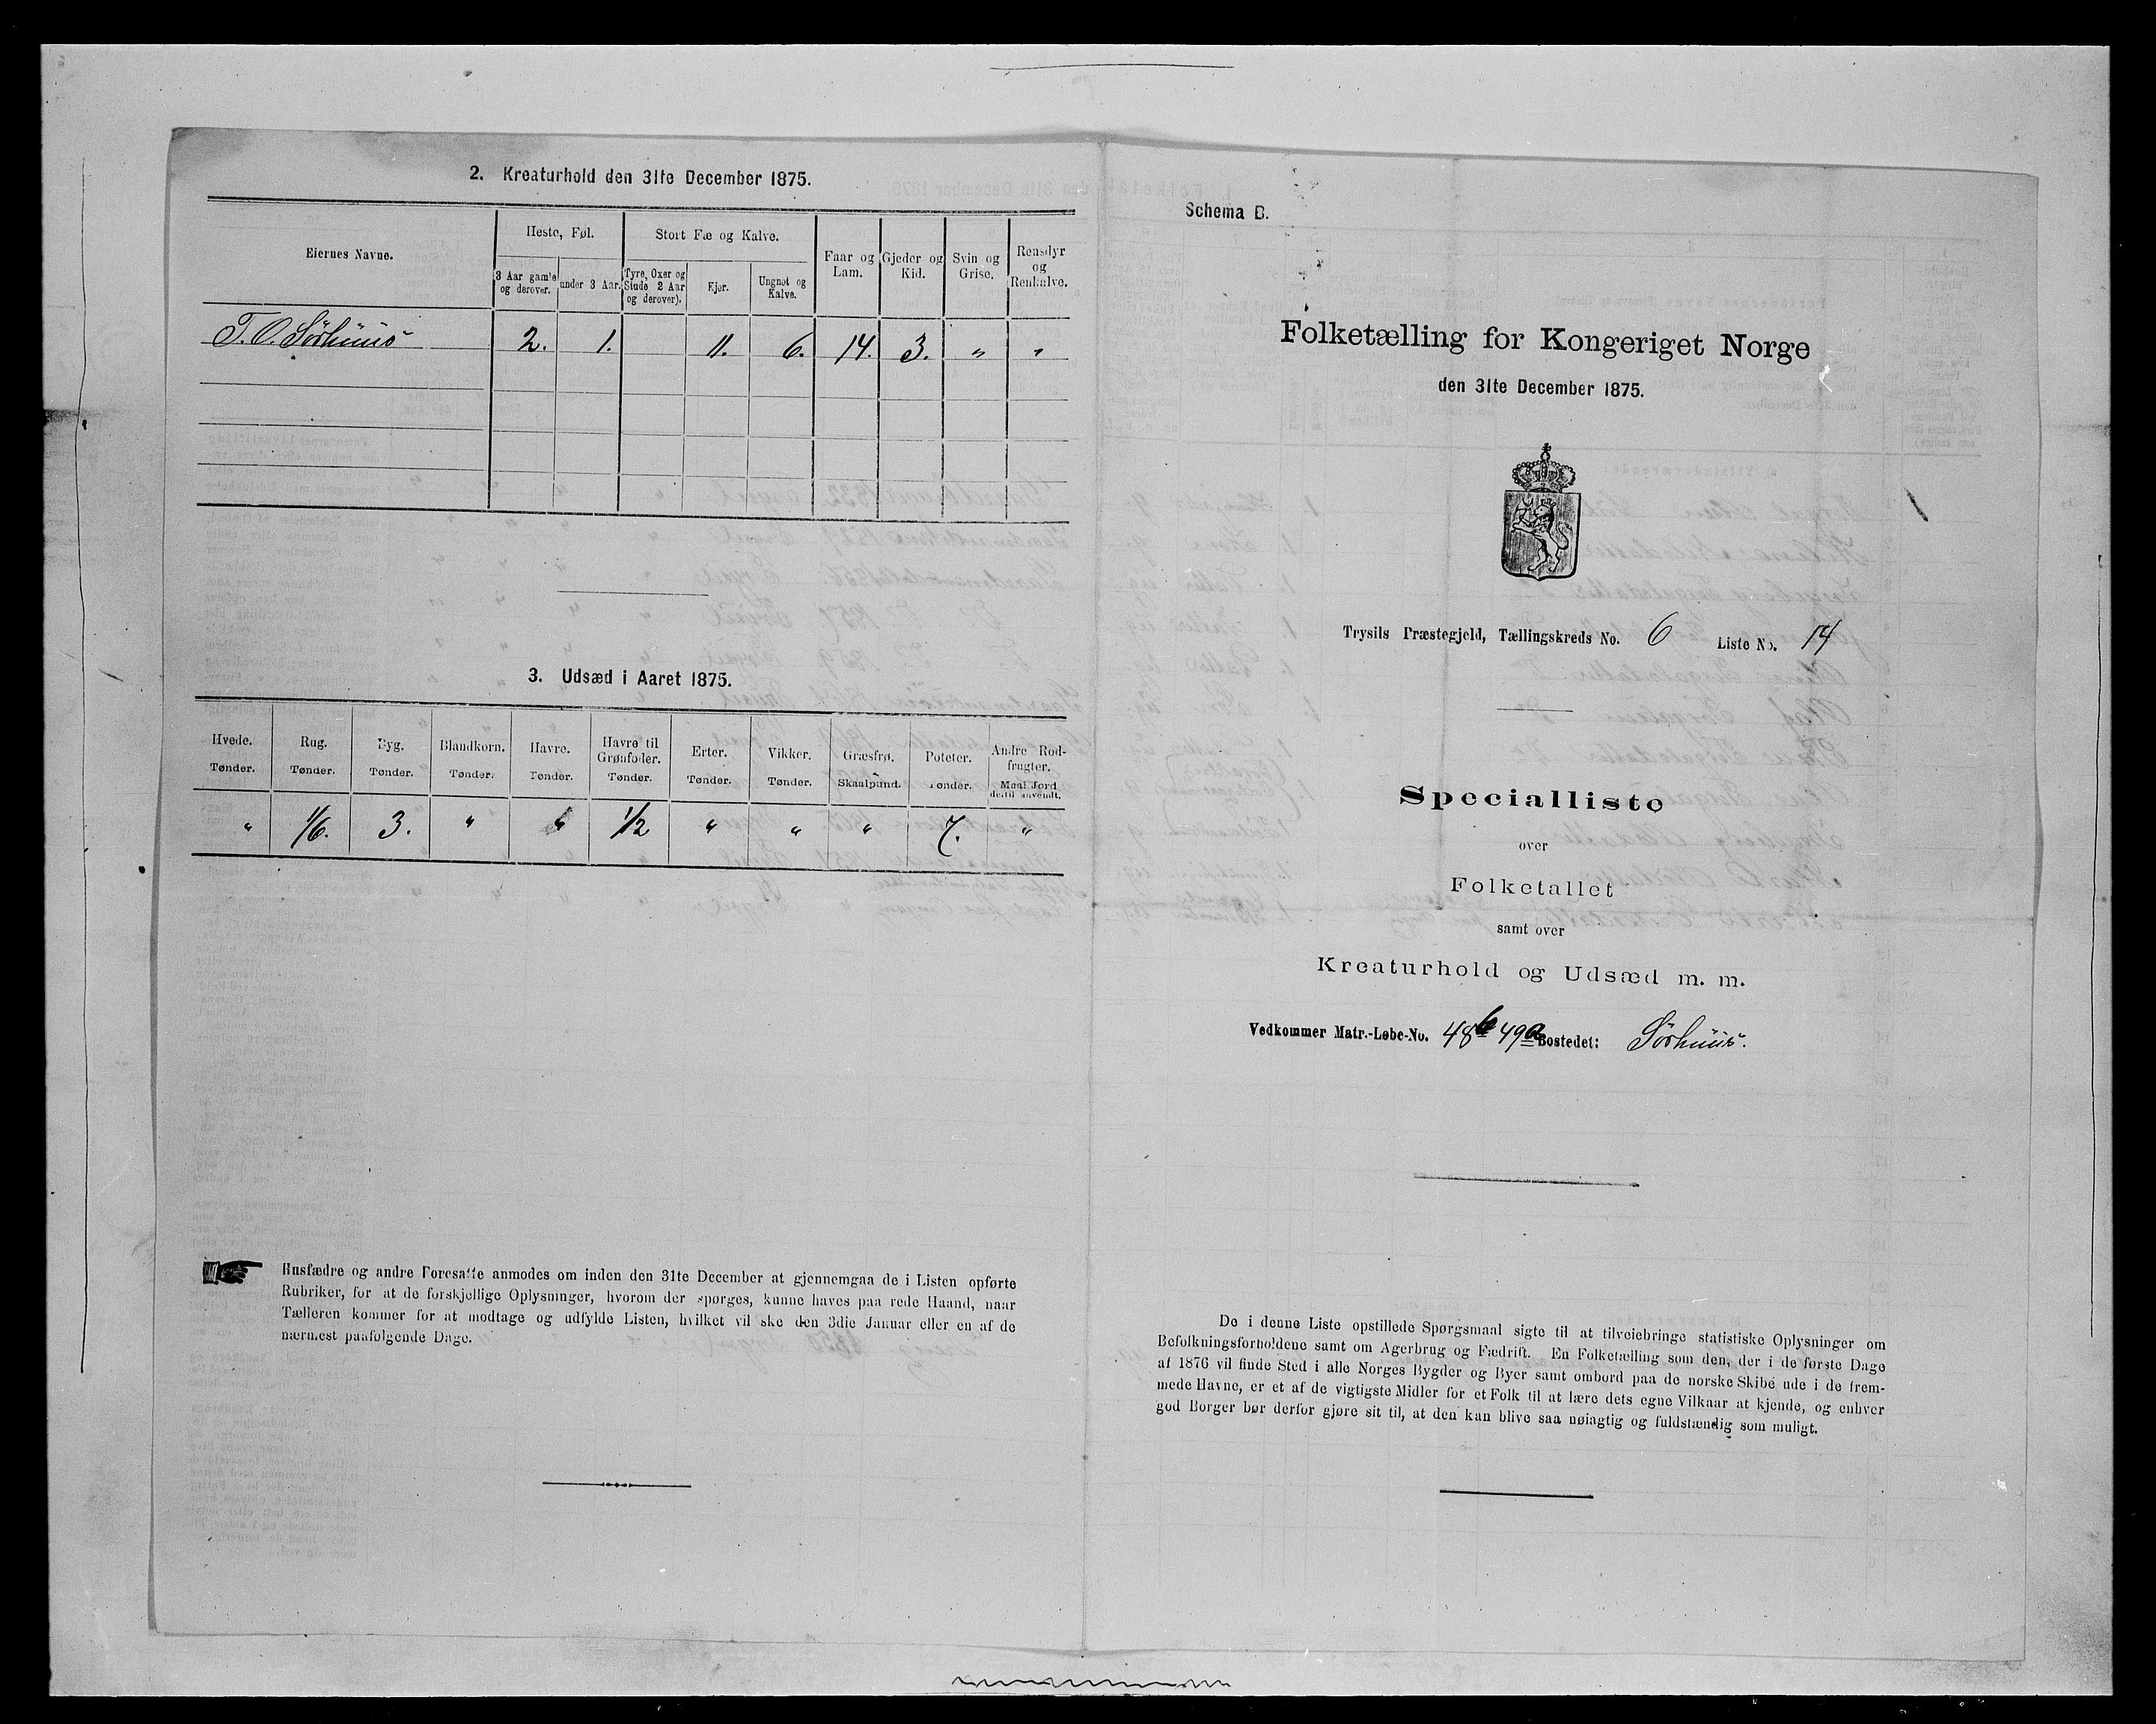 2. Kreaturhold den 31te December 1875.
Eiernes Navne.
Heste, Føl.
Stort Fæ og Kalve.
3 Aar gamle og derover.
under 3 Aar.
Tyre, Oxer og Stude 2 Aar og derover).
Kjør.
Ungnøt og Kalve.
Faar og Lam.
Gjeder og Kid.
Svin og Grise.
Rensdyr og Renkalve.
T. O. Sörhuus 2. 1. 11. 6. 14. 3. " "
3. Udsæd i Aaret 1875.
Hvede. Rug. Byg. Blandkorn. Havre. Havre til Grønfoder. Erter. Vikker. Græsfrø. Poteter. Andre Rodfrugter.
Tønder. Tønder. Tønder. Tønder. Tønder. Tønder. Tønder. Tønder. Skaalpund. Tønder. Maal Jord dertil anvendt.
" 1/6. 3. " " 1/2 " " " 7. "
Husfædre og andre Foresatte anmodes om inden den 31te December at gjennemgaa de i Listen opførte
Rubriker, for at de forskjellige Oplysninger, hvorom der spørges, kunne haves paa rede Haand, naar
Tælleren kommer for at modtage og udfylde Listen, hvilket vil ske den 3die Januar eller en af de
nærmest paafølgende Dage.
Schema B.
Folketælling for Kongeriget Norge
den 31te December 1875.
Trysils Præstegjeld, Tællingskreds No. 6 Liste No. 14
Specialliste
over
Folketallet
samt over
Kreaturhold og Udsæd m. m.
Vedkommer Matr.-Løbe-No. 48b 49a Bostedet: Sörhuus.
De i denne Liste opstillede Spørgsmaal sigte til at tilveiebringe statistiske Oplysninger om
Befolkningsforholdene samt om Agerbrug og Fædrift. En Folketælling som den, der i de første Dage
af 1876 vil finde Sted i alle Norges Bygder og Byer samt ombord paa de norske Skibe ude i de frem-
mede Havne, er et af de vigtigste Midler for et Folk til at lære dets egne Vilkaar at kjende, og enhver
god Borger bør derfor gjøre sit til, at den kan blive saa nøiagtig og fuldstændig som muligt.